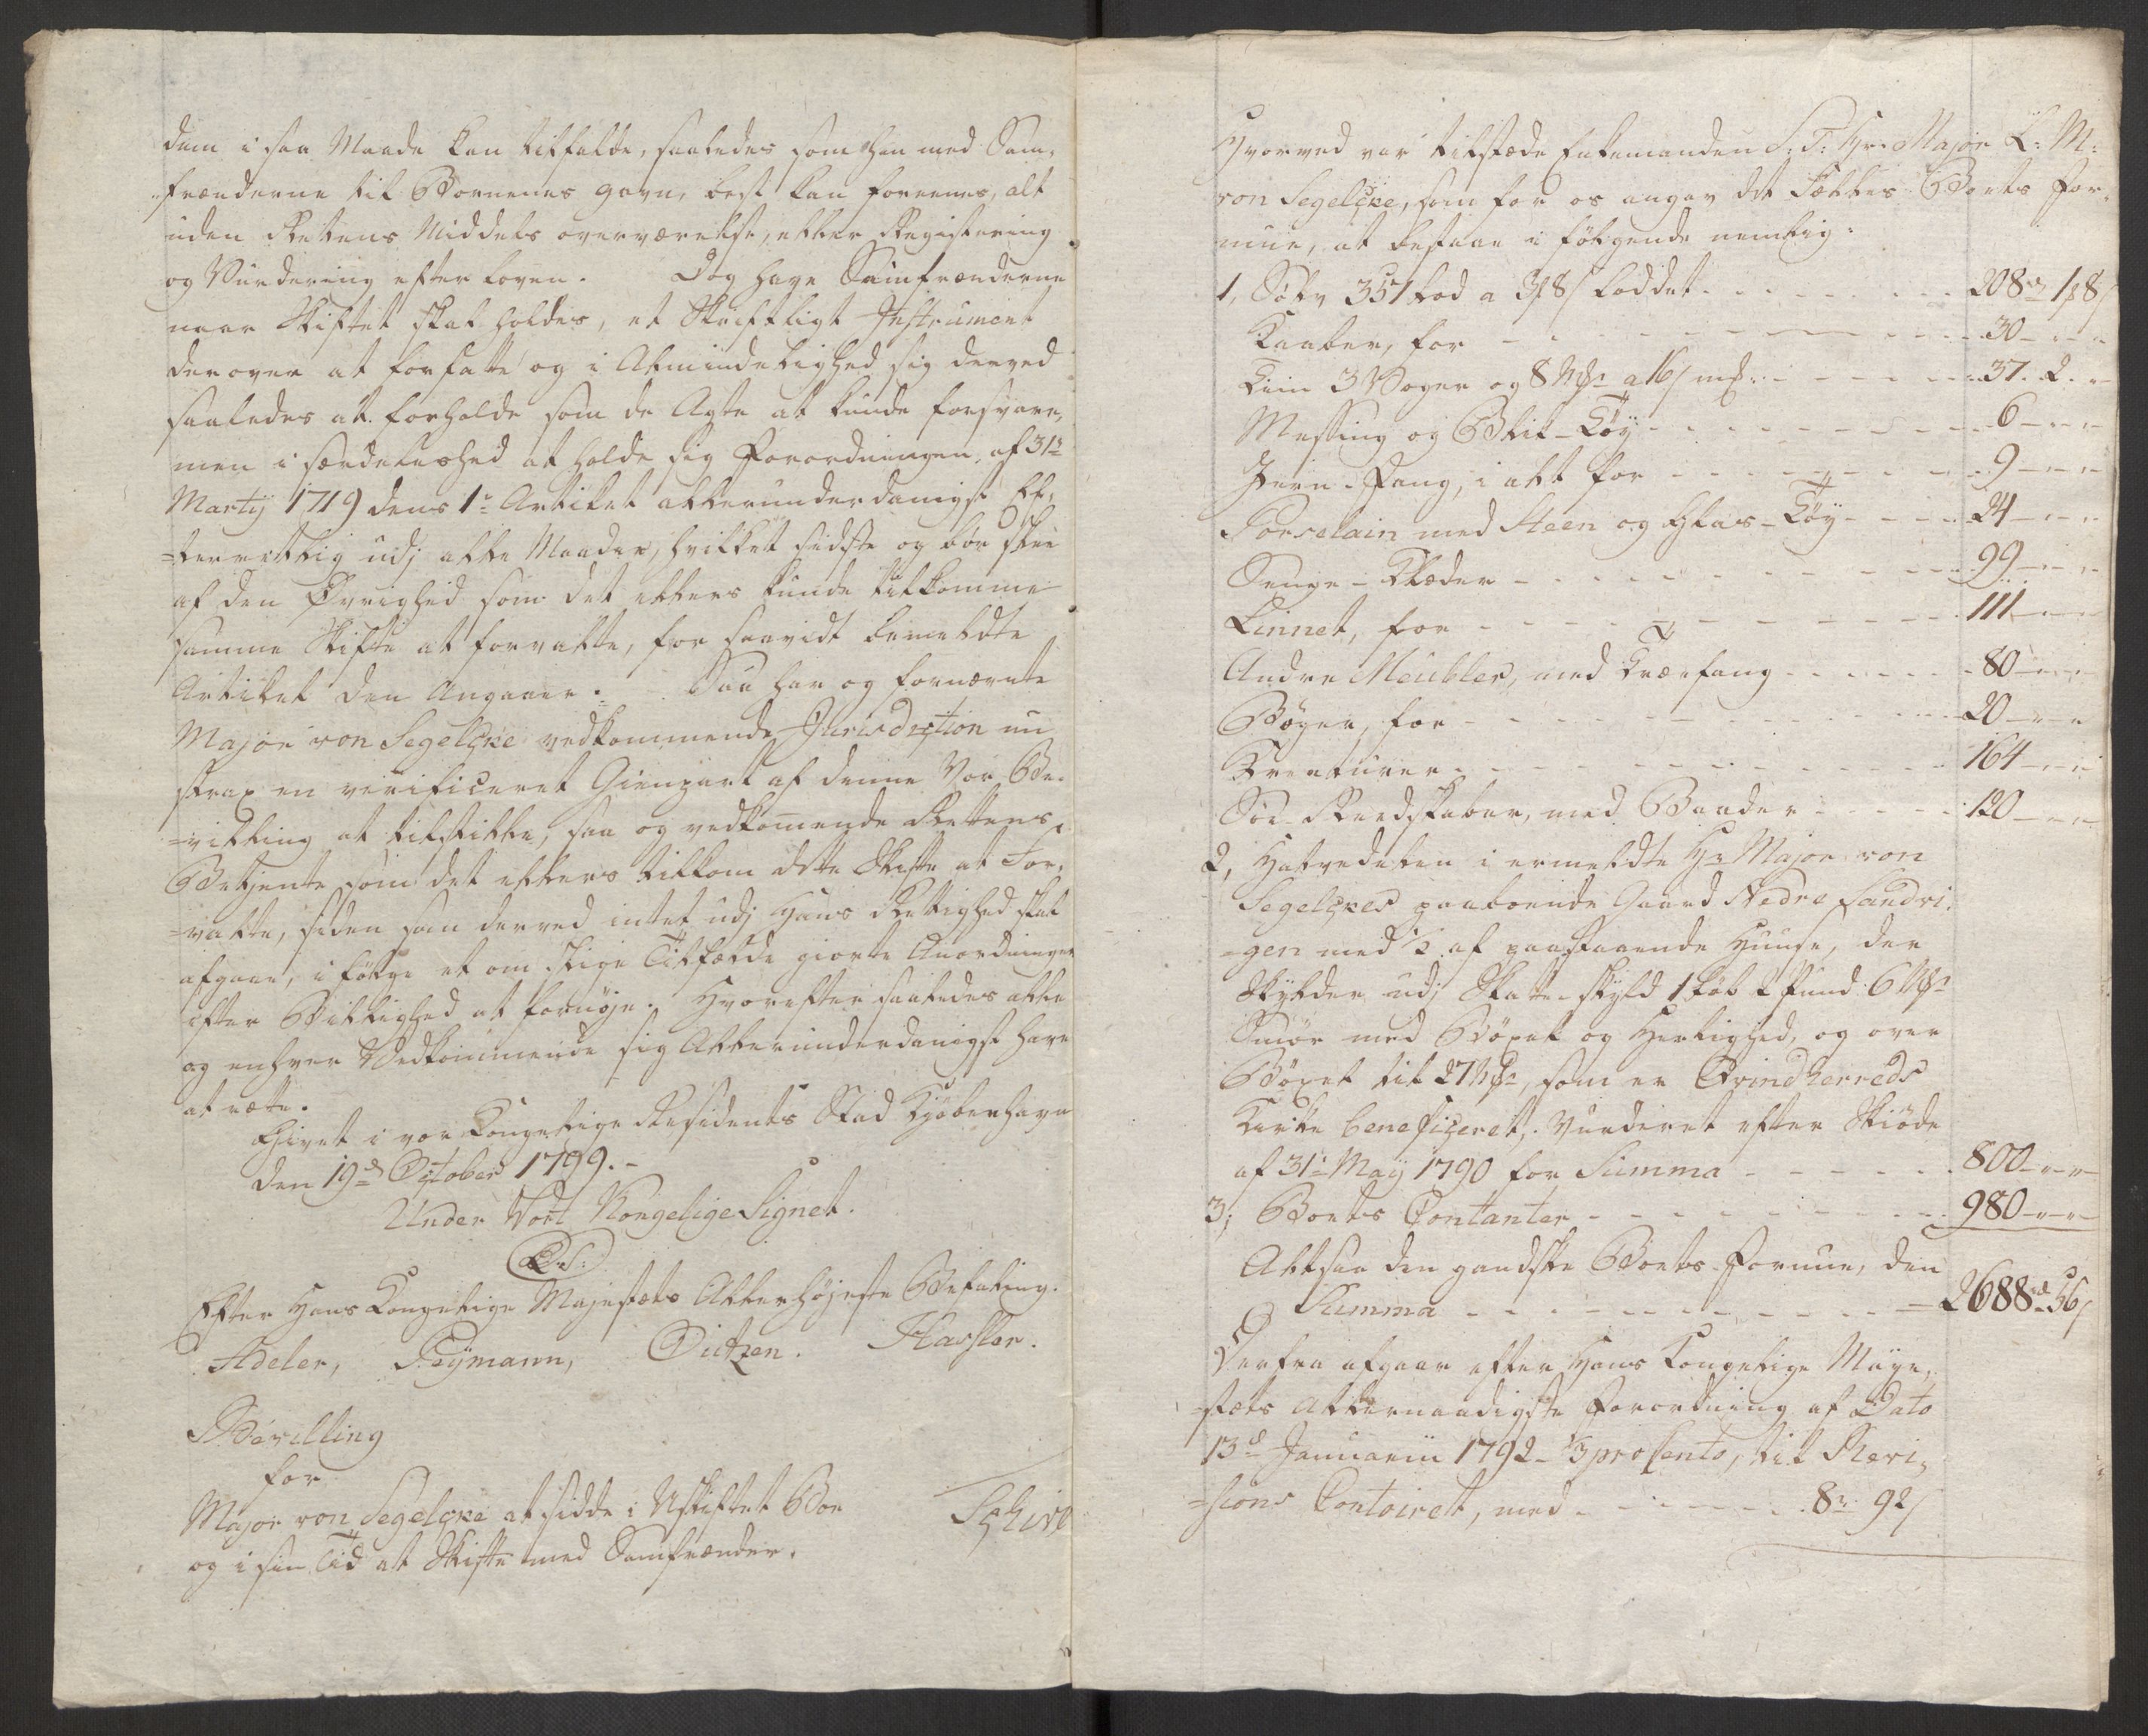 dem i saa Maade kan tilfalde, saaledes som han med Sam-
frænderne til Børnenes gavn, best kan foreenes, alt
uden Rettens Middels overværelse, eller Registering
og Vurdering efter loven. Dog have Samfrænderne
naar Skiftet skal holdes, et Skriftligt Instrument
derover at forfatte og i Almindelighed sig derved
saaledes at forholde som de Agte at kunde forsvare,
men i særdeleshed at holde sig Forordningen, af 31te
Martij 1719 dens 1te Artikel allerunderdanigst Ef-
=terrettelig udj alle Maader, hvilket sidste og bør skee
af den Øvrighed som det ellers kunde tilkomme
samme Skifte at forvalte, for saavidt bemeldte
Artikel den Angaaer. Saa har og fornævnte
Major von Segelcke vedkommende Jurisdiction nu
strax en verificeret Gienpart af denne Vor Be-
=villing at tilstille, saa og vedkommende Rettens
Betjente som det ellers tilkom dette Skifte at For-
=valte, siden ham derved intet udj Hans Rettighed skal
afgaae, i følge et om slige Tilfælde giorte Anordninger
efter Billighed at fornøje. Hvorefter saaledes alle
og enhver Vedkommende sig Allerunderdanigst have
at rette.
Givet i vor Kongelige Residents Stad Kjøbenhavn
den 19de October 1799.-
Under Vort Kongelige Signet.
L.S.
Efter Hans Kongelige Majestæts Allerhøjeste Befaling.
Adeler, Feÿmann, Ditzen. Hassler.
Bevilling
for
Major von Segelcke at sidde i Uskiftet Boe
og i sin Tid at Skifte med Samfrænder.
Hvorved var tilstæde Enkemanden S: T: Hr. Major L: M:
von Segelcke, som for os angav det Fælles Boets for-
mue, at bestaae i følgende nemlig:
1, Sølv 357 Lod a 3 ½ 8/ Loddet - - - 208 rd 1 ½ 8/
Kaaber, for - - - 30 - " - "
Tiin 3 Voger og 8 Mrk a 16/ mrk: - - - 37. 2. "
Messing og Blik-Tøÿ - - - 6 - " - "
Jern-Fang, i alt for - - - 9 - " - "
Porcelain med Steen og Glas-Tøÿ - - - 24 - " - "
Senge-Klæder - - - 99 - " - "
Linnet, for - - - 111 - " - "
Andre Meubler, med Træefang - - - 80 - " - "
Bøger, for - - - 20 - " - "
Kreaturer - - - 164 - " - "
Søe-Reedskaber, med Baader - - - 120 - " - "
2, Halvedelen i ermeldte Hr Major von
Segelckes paaboende Gaard Nedre Sandvi-
=gen med ½ af paastaaende Huuse, der
Skylder udj Skatte-skyld 1 Løb 2 Pund 6 Mrk
Smør med Bøxel og Herlighed, og over
Bøxel til 27 Mrk, som er Qvindherreds
Kirke beneficeret, Vurderet efter Skiøde
af 31te Maÿ 1790 for Summa - - - 800 - " - "
3, Boets Contanter - - - 980 - " - "
Altsaa den gandske Boets-Formue, den
Summa - - - 2688 rd 56/
Derfra afgaaer efter Hans Kongelige Maÿe-
=stæts Allernaadigste Forordning af Dato
13de Januarii 1792 - ⅓ pro Cento, til Revi-
=sions Contoiret, med - - - 8 rd 92/